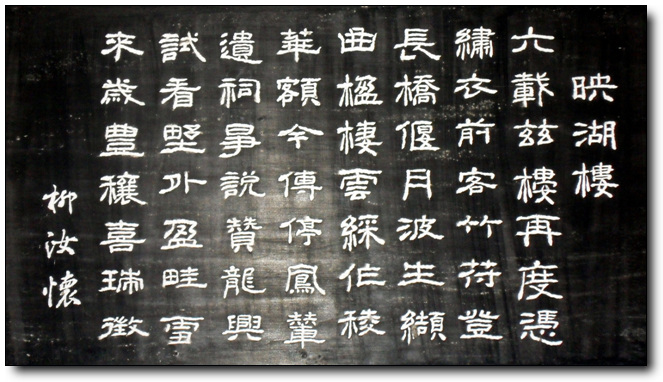 映湖樓
六載茲樓再度憑
繡衣前客竹符登
長橋偃月波生纈
曲楹棲雲綵作稜
華額今傳停鳳輦
遺祠爭說贊龍興
試看野外盈畦雪
來歲豊穰喜瑞徵
柳汝懷